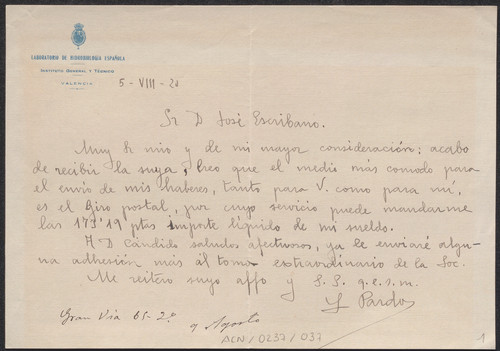 LABORATORIO DE HIDROBIOLOGÍA ESPAÑOLA
INSTITUTO GENERAL Y TÉCNICO
VALENCIA
5-VIII-20
Sr D José Escribano.
Muy Sr mio y de mi mayor consideración: acabo
de recibir la suya, Creo que el medio más comodo para
el envio de mis haberes, tanto para V. como para mí,
es el Giro postal, por cuyo servicio puede mandarme
las 173'19 ptas importe líquido de mi sueldo.
A D Cándido saludos afectuosos, ya le enviaré algu-
na adhesión más al tomo extraordinario de la Soc.
Me reitero suyo affo y S. S. q.e.s.m.
L Pardo
Gran Via 65-2º
9 Agosto
ACN/0237/037
1